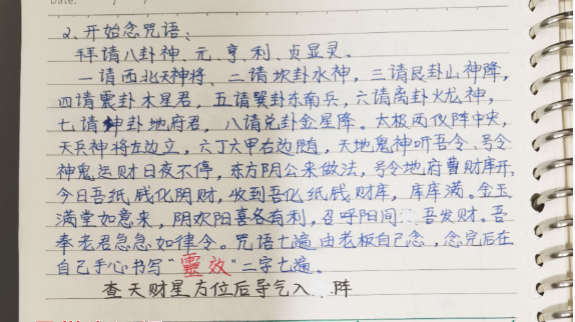 Date:
2、开始念咒语:
拜请八卦神、元、亨、利、贞显灵。
一请西北天神将、二请坎卦水神,三请艮卦山神降,
四请震卦木星君,五请巽卦东南兵,六请离卦火龙神,
七请坤卦地府君,八请兑卦金星降。太极两仪阵中央,
天兵神将左边立,六丁六甲右边随,天地鬼神听吾令、号令
神鬼运财日夜不停,东方阴公来做法,号令地府曹财库开,
今日吾纸钱化阴财,收到吾化纸钱财库,库库满。金玉
满堂如意来,阴欢阳喜各有利,召呼阳间 吾发财。吾
奉老君急急如律令。咒语七遍由老板自己念,念完后在
自己手心书写"靈效"二字七遍。
查天财星方位后导气入 阵